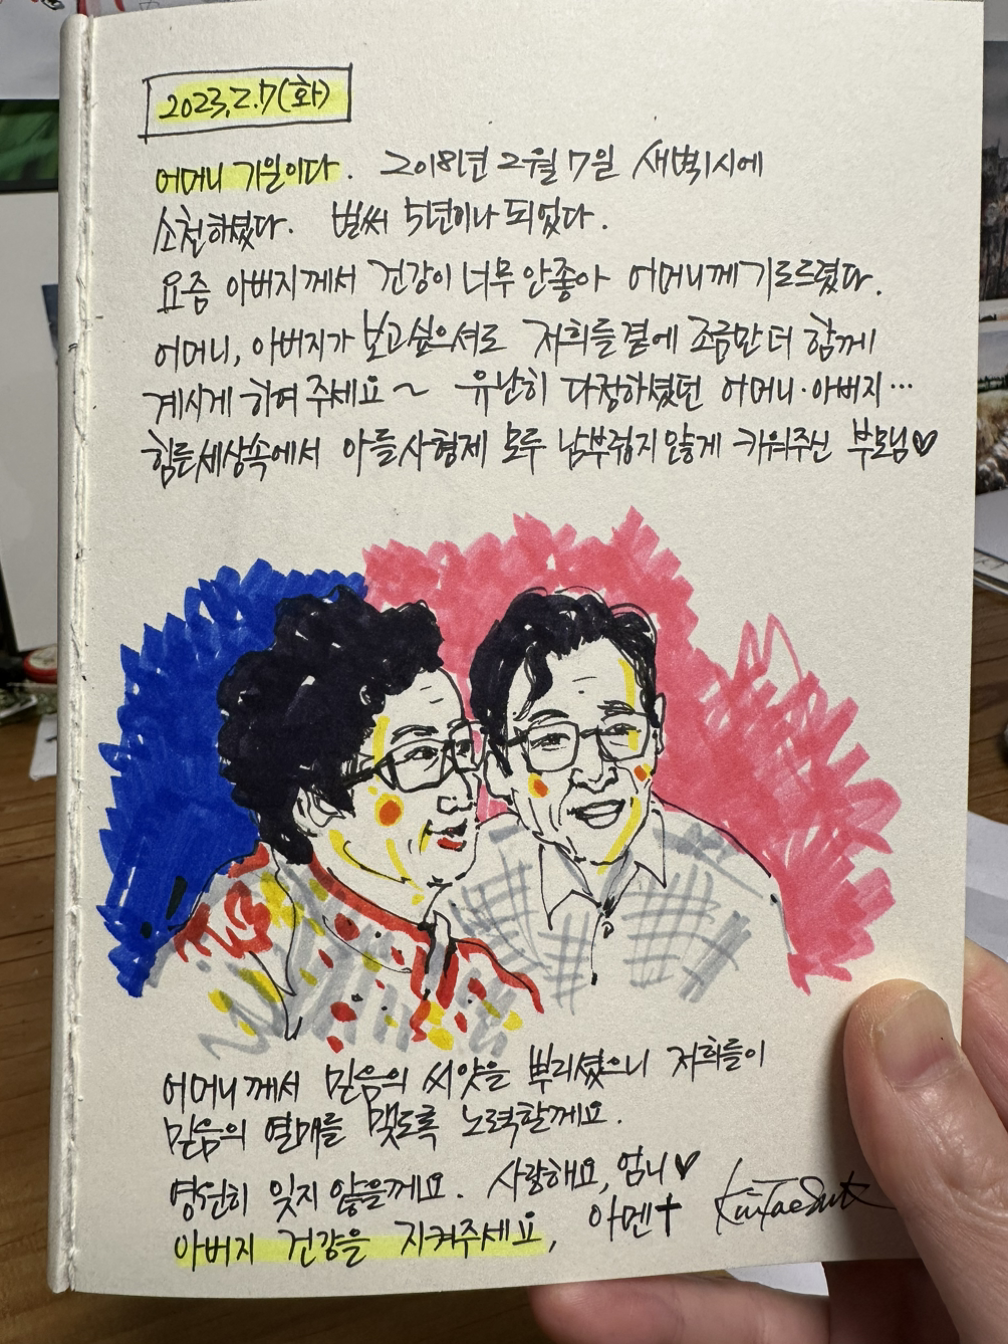 2023.2.7(화)
어머니 기일이다. 2018년 2월 7일 새벽1시에
소천하셨다. 벌써 5년이나 되었다.
요즘 아버지께서 건강이 너무 안좋아 어머니께 기도드렸다.
어머니, 아버지가 보고싶으셔도 저희들 곁에 조금만 더 함께
계시게 하여 주세요~ 유난히 다정하셨던 어머니·아버지…
힘든 세상속에서 아들 사형제 모두 남부럽지 않게 키워주신 부모님♥
어머니께서 믿음의 씨앗을 뿌리셨으니 저희들이
믿음의 열매를 맺도록 노력할께요.
영원히 잊지 않을께요. 사랑해요, 엄니♥
아버지 건강을 지켜주세요, 아멘✝